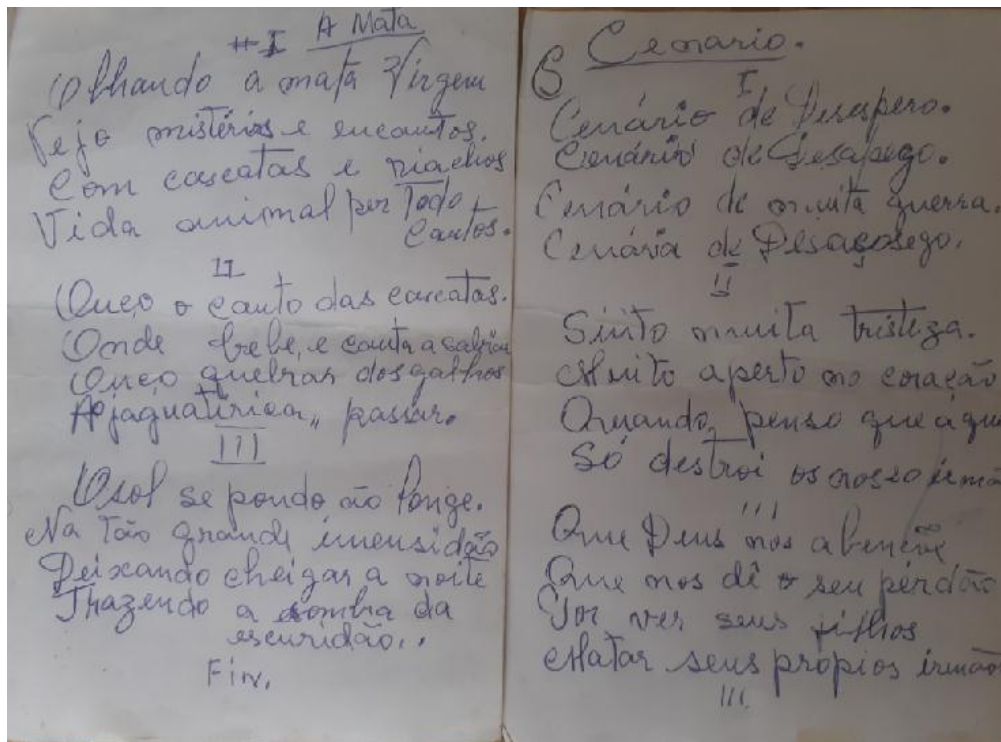 A Mata
I
Olhando a mata Virgem
Vejo mistérios e encantos.
Com cascatas e riachos
Vida animal por Todo
Cantos.
II
Ouço o canto das cascatas.
Onde bebe, e canta a sabiá
Ouço quebrar dos galhos
A jaguatirica,, passar.
III
O sol se pondo ao longe.
Na Tão grande imensidão
Deixando cheigar a noite
Trazendo a sombra da
escuridão..
Fin.
Cenario.
I
Cenário de Desespero.
Cenário de Desapego.
Cenário de muita guerra.
Cenária de Desaçosego.
II
Sinto muita tristeza.
Muito aperto no coração
Quando, penso que a gue
Só destroi os nosso irmã
III
Que Deus nos abençoe
Que nos dê o seu perdão
Por ver seus filhos
Matar seus própios irmão
III